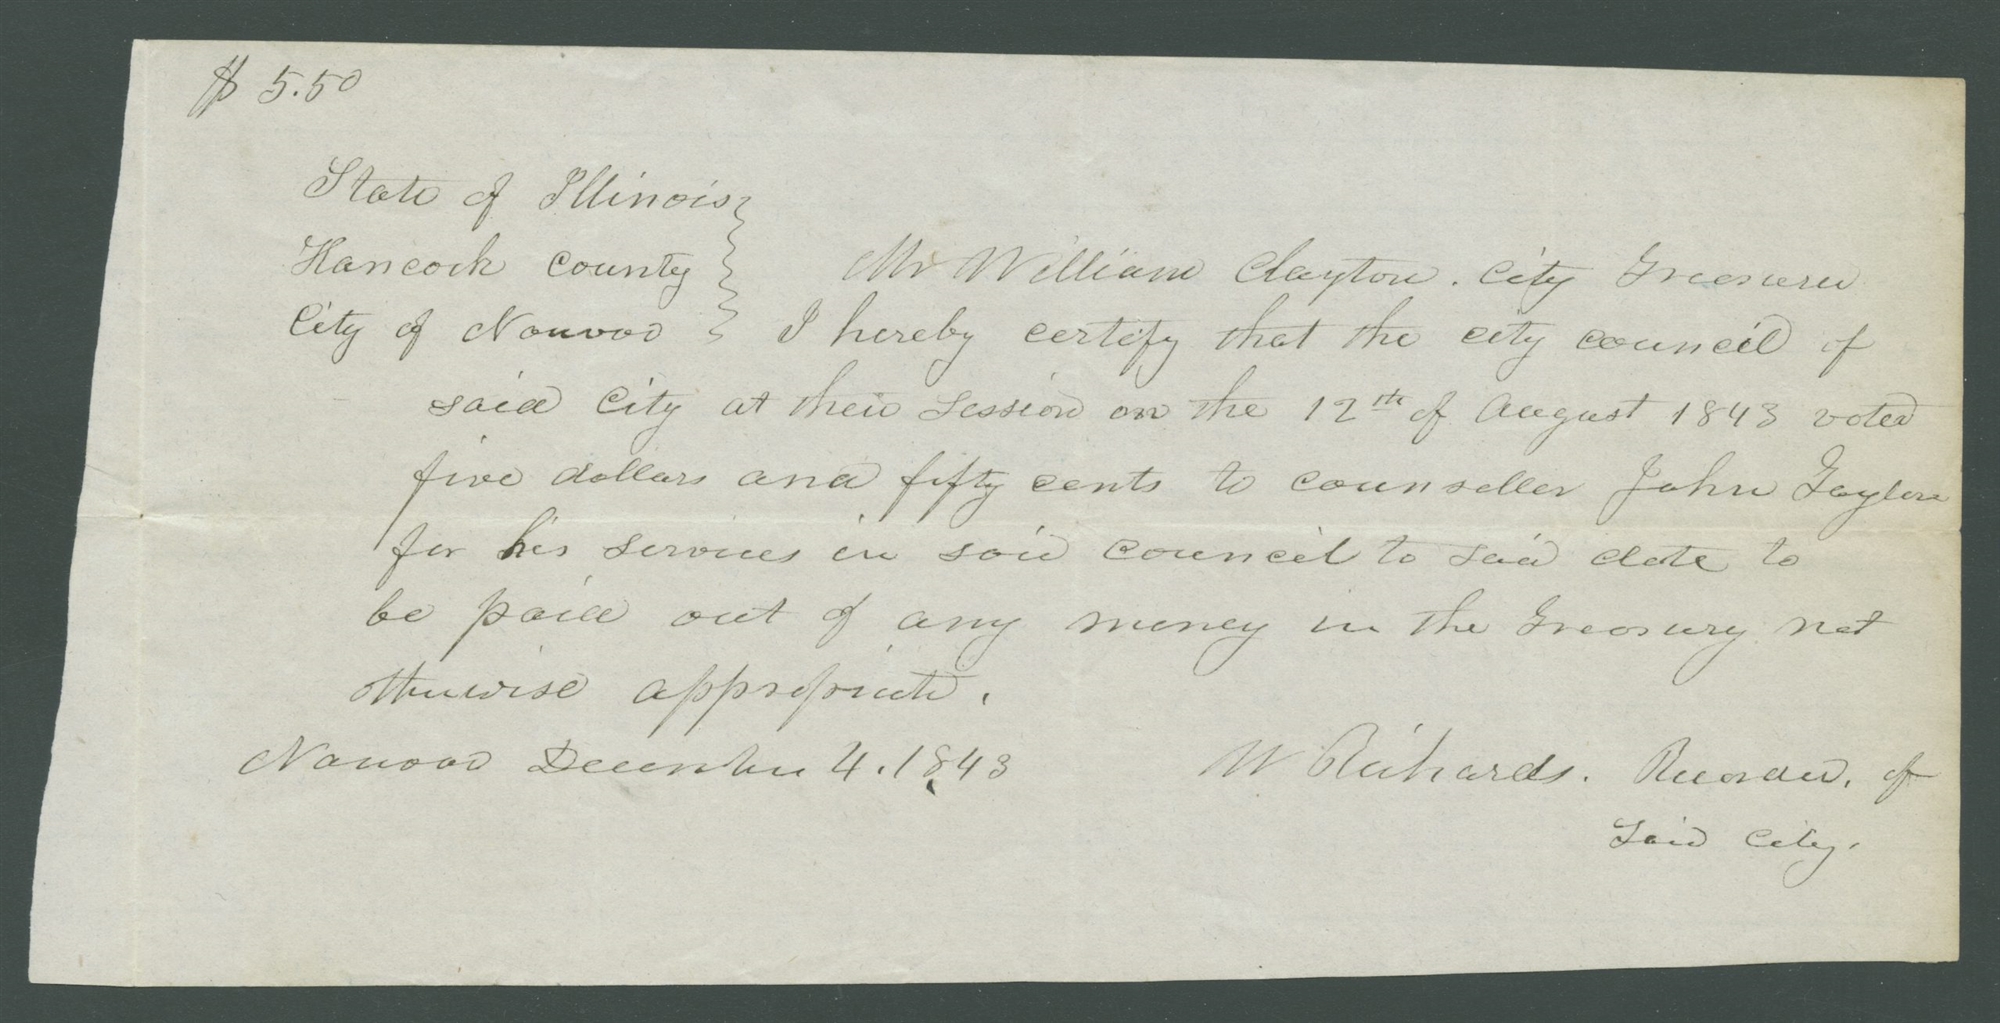 $ 5.50
State of Illinois
Hancock county
City of Nauvoo
Mr William Clayton. city Treasurer
I hereby certify that the city council of
said City at their Session on the 12th of August 1843 voted
five dollars and fifty cents to counseller John Taylor
for his services in said council to said date to
be paid out of any money in the Treasury not
otherwise appropriate.
Nauvoo December 4. 1843
W Richards. Recorder. of
Said City.